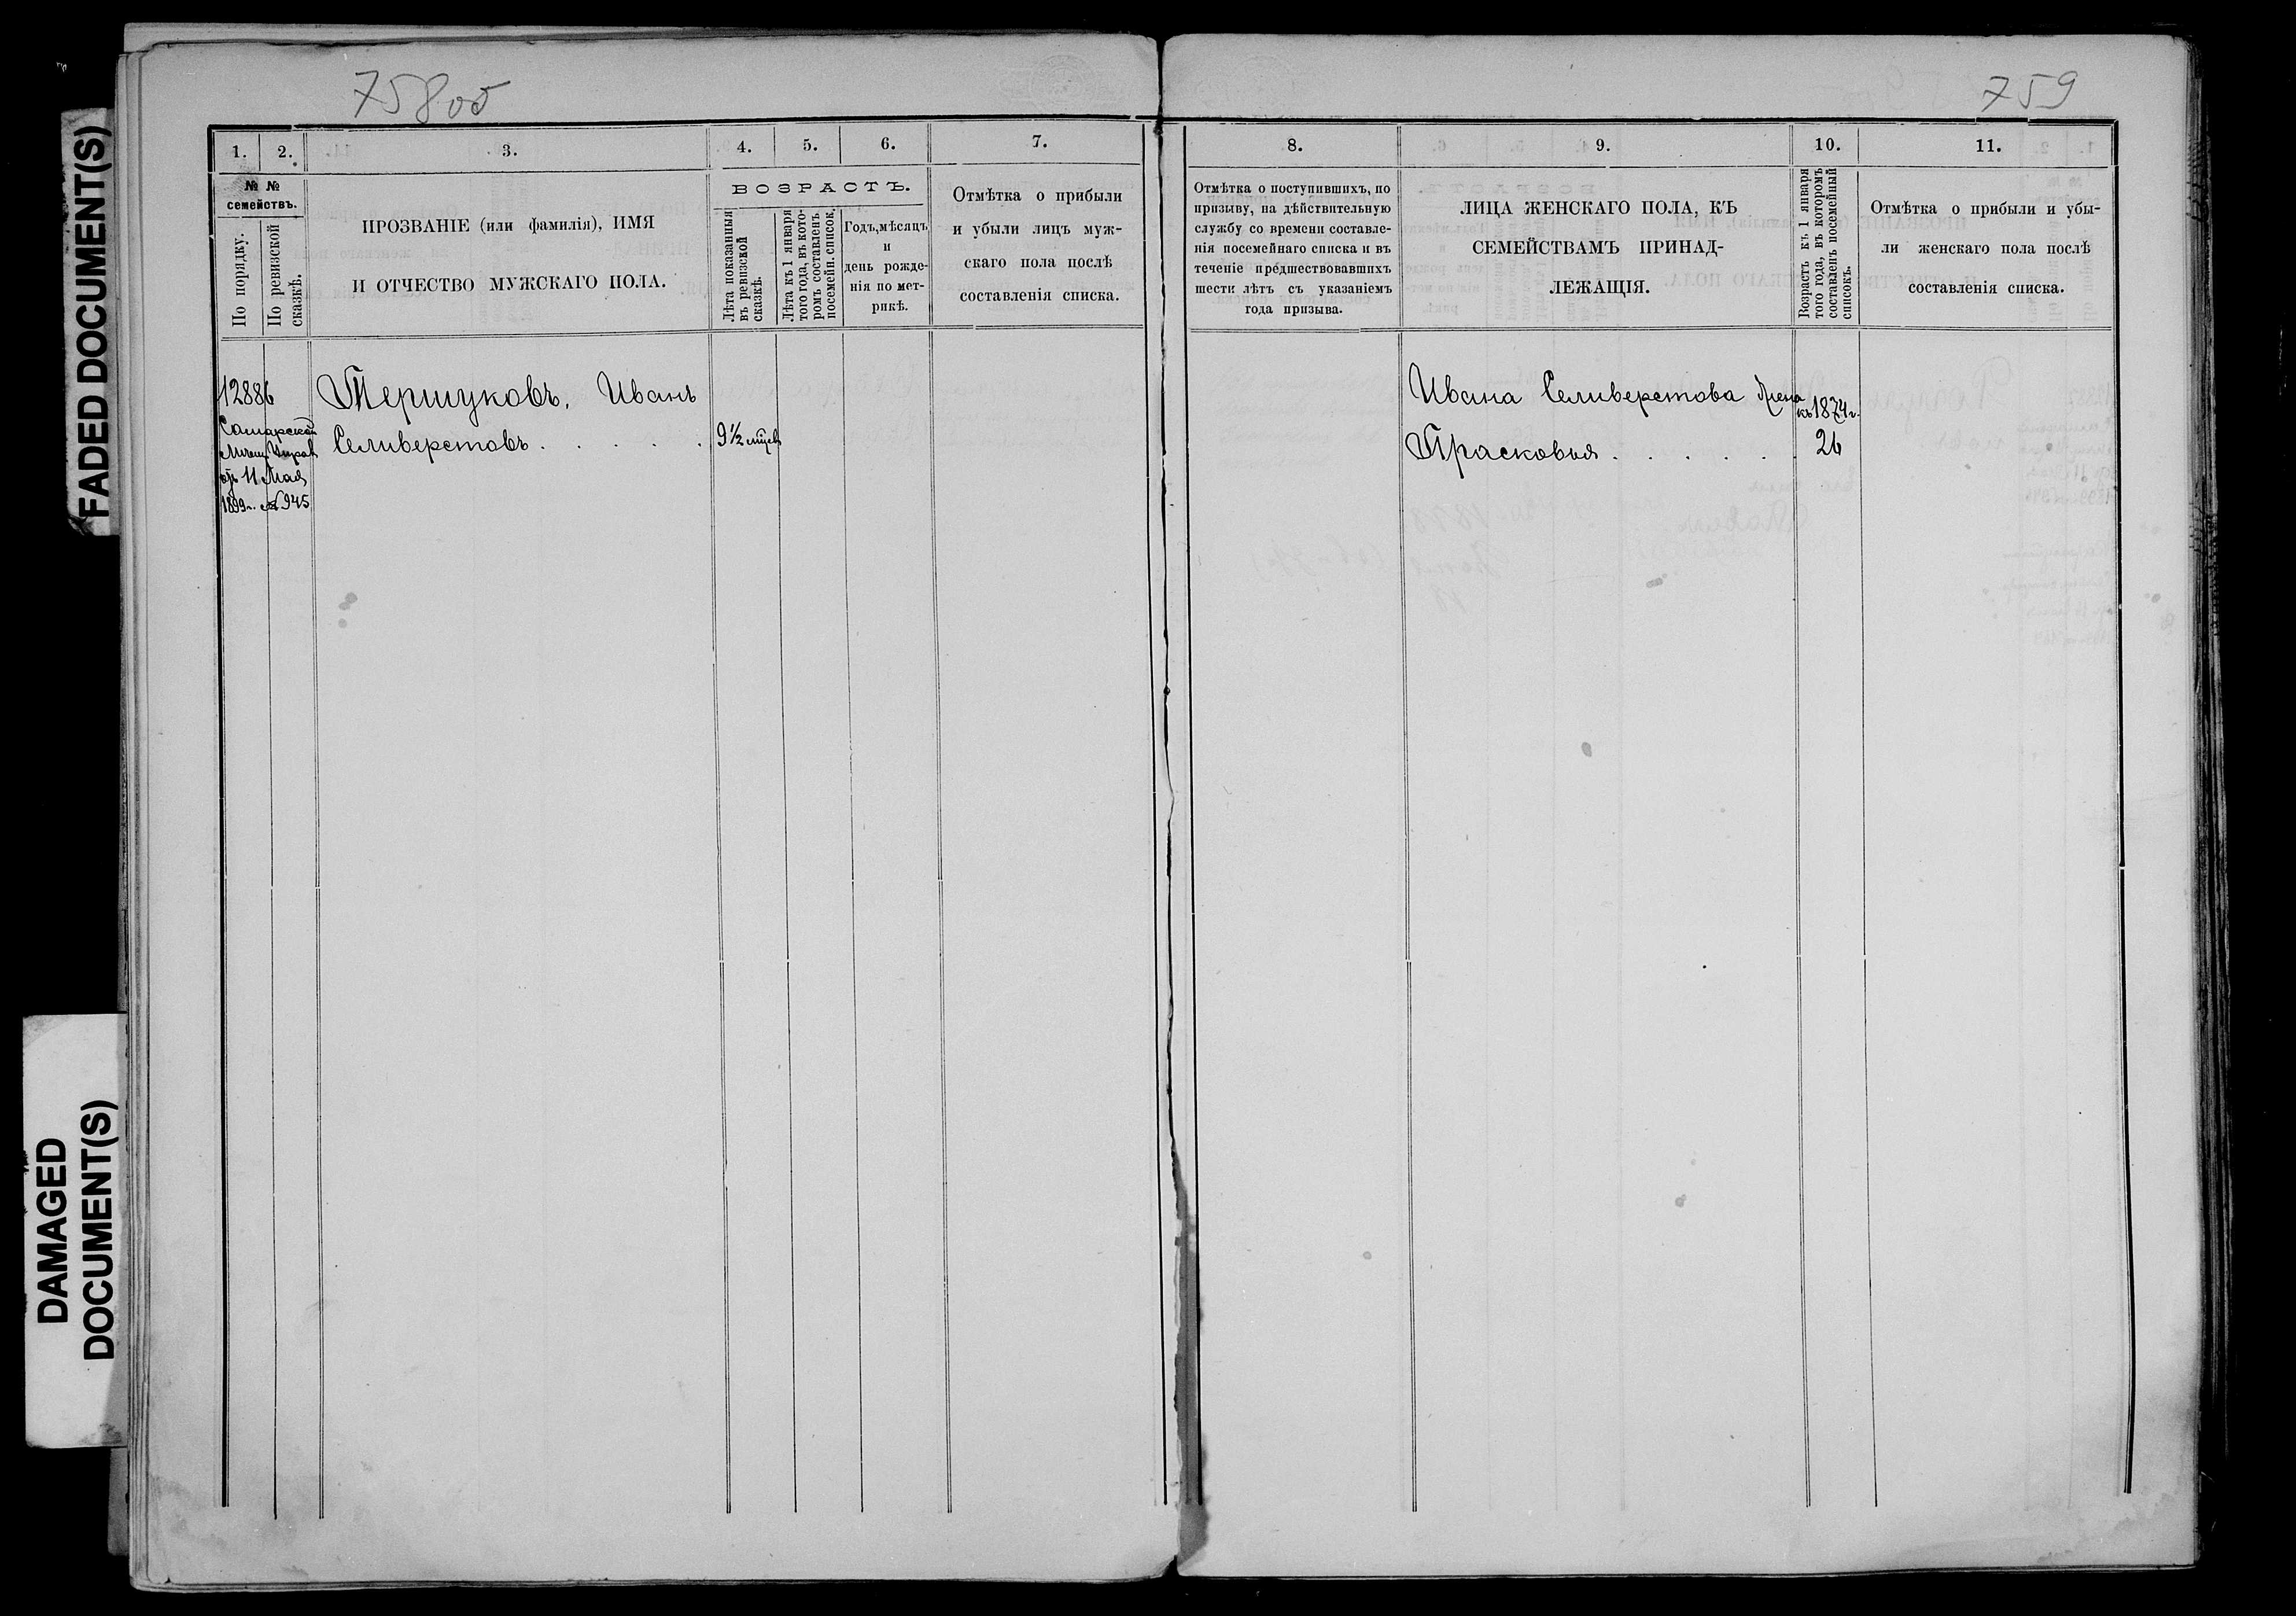 FADED DOCUMENT(S)
DAMAGED
DOCUMENT(S)
758об
759
1. 2. 3. 4. 5. 6. 7.
№ №
семействъ.
По порядку.
По ревизской
сказкѣ.
ПРОЗВАНІЕ (или фамилія), ИМЯ
И ОТЧЕСТВО МУЖСКАГО ПОЛА.
ВОЗРАСТЪ.
Лѣта показанныя
въ ревизской
сказкѣ.
Лѣта къ 1 января
того года, въ кото-
ромъ составленъ
посемейн. список.
Годъ, мѣсяцъ
и
день рожде-
нія по мет-
рикѣ.
Отмѣтка о прибыли
и убыли лицъ муж-
скаго пола послѣ
составленія списка.
12886
Самарской
Мѣщ. Управ
отъ 11 Мая
1899 г. № 945
Тершуковъ, Иванъ
Селиверстовъ . . . . .
9½ мѣсев
8. 9. 10. 11.
Отмѣтка о поступившихъ, по
призыву, на дѣйствительную
службу со времени составле-
нія посемейнаго списка и въ
теченіе предшествовавшихъ
шести лѣтъ съ указаніемъ
года призыва.
ЛИЦА ЖЕНСКАГО ПОЛА, КЪ
СЕМЕЙСТВАМЪ ПРИНАД-
ЛЕЖАЩІЯ.
Возрастъ къ 1 января
того года, въ которомъ
составленъ посемейный
списокъ.
Отмѣтка о прибыли и убы-
ли женскаго пола послѣ
составленія списка.
Ивана Селиверстова Жена
Прасковья . . . . . .
къ 1874 г.
26